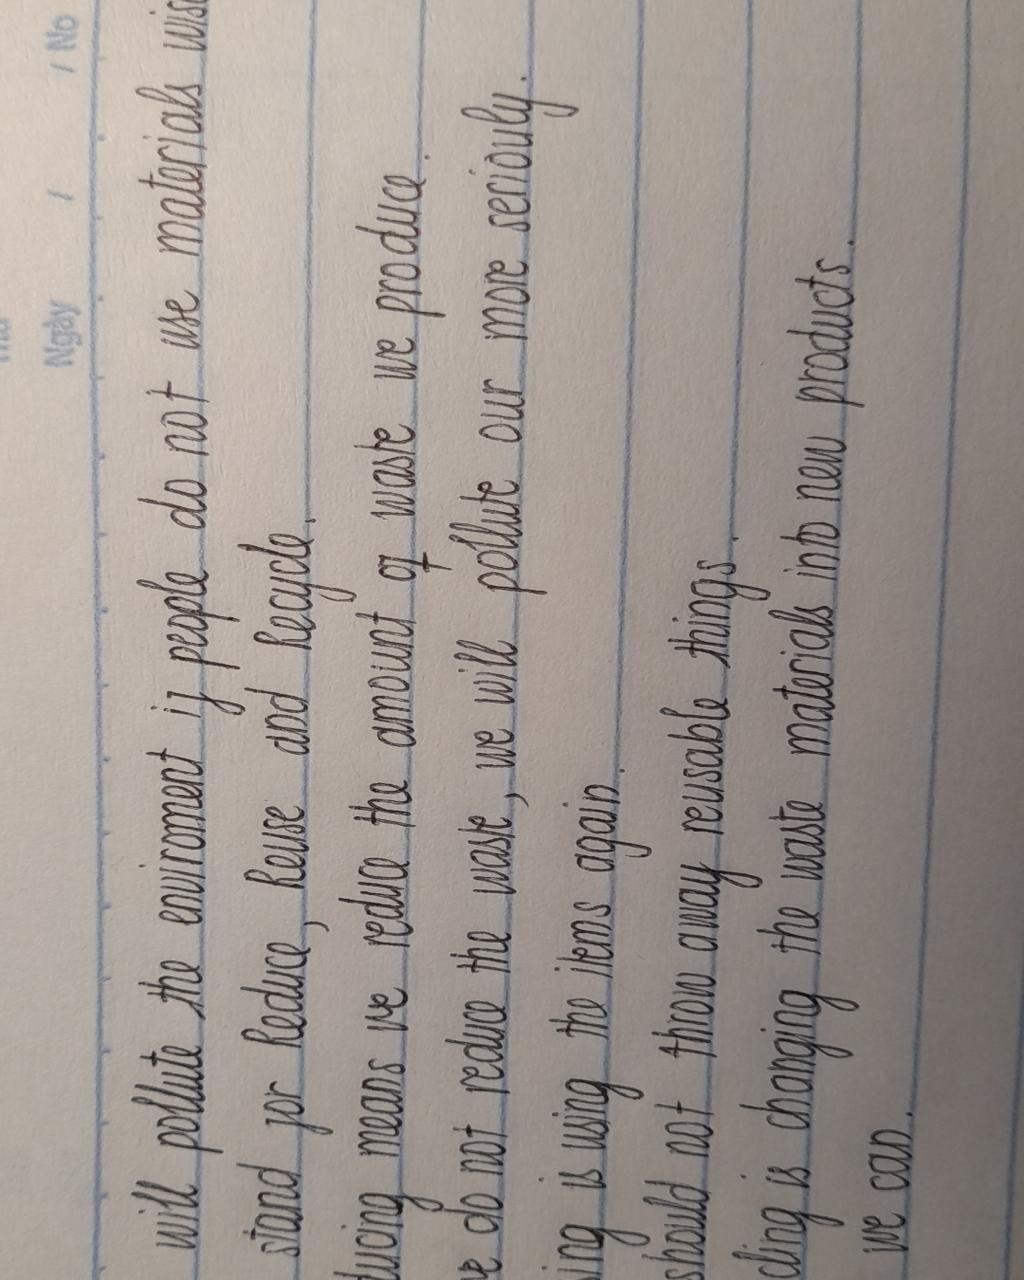 Ngày / / No
will pollute the enviroment if people do not use materials wise
stand for Reduce, Reuse and Recycle.
ducing means we reduce the amount of waste we produce.
we do not reduce the waste, we will pollute our more seriouly.
ing is using the items again.
should not thron away reusable things.
cling is changing the waste materials into new products.
we can.